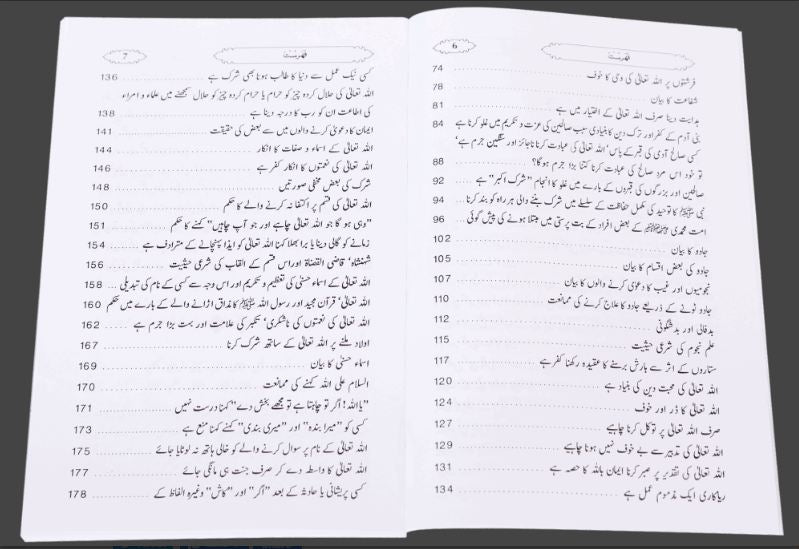 6
فہرست
فرشتوں پر اللہ تعالیٰ کی وحی کا خوف 74
شفاعت کا بیان 78
ہدایت دینا صرف اللہ تعالیٰ کے اختیار میں ہے 81
بنی آدم کے کفر اور ترک دین کا بنیادی سبب صالحین کی عزت و تکریم میں غلو کرنا ہے 84
کسی صالح آدمی کی قبر کے پاس اللہ تعالیٰ کی عبادت کرنا ناجائز اور سنگین جرم ہے‘
تو خود اس مرد صالح کی عبادت کرنا کتنا بڑا جرم ہوگا؟ 88
صالحین اور بزرگوں کی قبروں کے بارے میں غلو کا انجام ”شرک اکبر“ ہے 92
نبی ﷺ کا توحید کی مکمل حفاظت کے سلسلے میں شرک بننے والی ہر راہ کو بند کرنا 94
امت محمدی ﷺ کے بعض افراد کے بت پرستی میں مبتلا ہونے کی پیش گوئی 96
جادو کا بیان 102
جادو کی بعض اقسام کا بیان 105
نجومیوں اور غیب کا دعویٰ کرنے والوں کا بیان 107
جادو ٹونے کے ذریعے جادو کا علاج کرنے کی ممانعت 110
بدفالی اور بدشگونی 112
علم نجوم کی شرعی حیثیت 115
ستاروں کے اثر سے بارش برسنے کا عقیدہ رکھنا کفر ہے 117
اللہ تعالیٰ کی محبت دین کی بنیاد ہے 120
اللہ تعالیٰ کا ڈر اور خوف 124
صرف اللہ تعالیٰ پر توکل کرنا چاہیے 127
اللہ تعالیٰ کی تدبیر سے بے خوف نہیں ہونا چاہیے 129
اللہ تعالیٰ کی تقدیر پر صبر کرنا ایمان باللہ کا حصہ ہے 131
ریاکاری ایک مذموم عمل ہے 134
7
فہرست
کسی نیک عمل سے دنیا کا طالب ہونا بھی شرک ہے 136
اللہ تعالیٰ کی حلال کردہ چیز کو حرام یا حرام کردہ چیز کو حلال سمجھنے میں علماء و امراء
کی اطاعت ان کو رب کا درجہ دینا ہے 138
ایمان کا دعویٰ کرنے والوں میں سے بعض کی حقیقت 141
اللہ تعالیٰ کے اسماء و صفات کا انکار 144
اللہ تعالیٰ کی نعمتوں کا انکار کفر ہے 146
شرک کی بعض مخفی صورتیں 148
اللہ تعالیٰ کی قسم پر اکتفا نہ کرنے والے کا حکم 150
”وہی ہو گا جو اللہ تعالیٰ چاہے اور جو آپ چاہیں“ کہنے کا حکم 151
زمانے کو گالی دینا یا برا بھلا کہنا اللہ تعالیٰ کو ایذا پہنچانے کے مترادف ہے 154
شہنشاہ‘ قاضی القضاۃ اور اس قسم کے القاب کی شرعی حیثیت 156
اللہ تعالیٰ کے اسماء حسنیٰ کی تعظیم و تکریم اور اس وجہ سے کسی کے نام کی تبدیلی 158
اللہ تعالیٰ‘ قرآن مجید اور رسول اللہ ﷺ کا مذاق اڑانے والے کے بارے میں حکم 160
اللہ تعالیٰ کی نعمتوں کی ناشکری‘ تکبر کی علامت اور بہت بڑا جرم ہے 162
اولاد ملنے پر اللہ تعالیٰ کے ساتھ شرک کرنا 167
اسماء حسنیٰ کا بیان 169
السلام علی اللہ کہنے کی ممانعت 170
”یا اللہ! اگر تو چاہتا ہے تو مجھے بخش دے“ کہنا درست نہیں 171
کسی کو ”میرا بندہ“ اور ”میری بندی“ کہنے کہنا منع ہے 173
اللہ تعالیٰ کے نام پر سوال کرنے والے کو خالی ہاتھ نہ لوٹایا جائے 175
اللہ تعالیٰ کا واسطہ دے کر صرف جنت ہی مانگی جائے 177
کسی پریشانی یا حادثہ کے بعد ”اگر“ اور ”کاش“ وغیرہ الفاظ کے 178